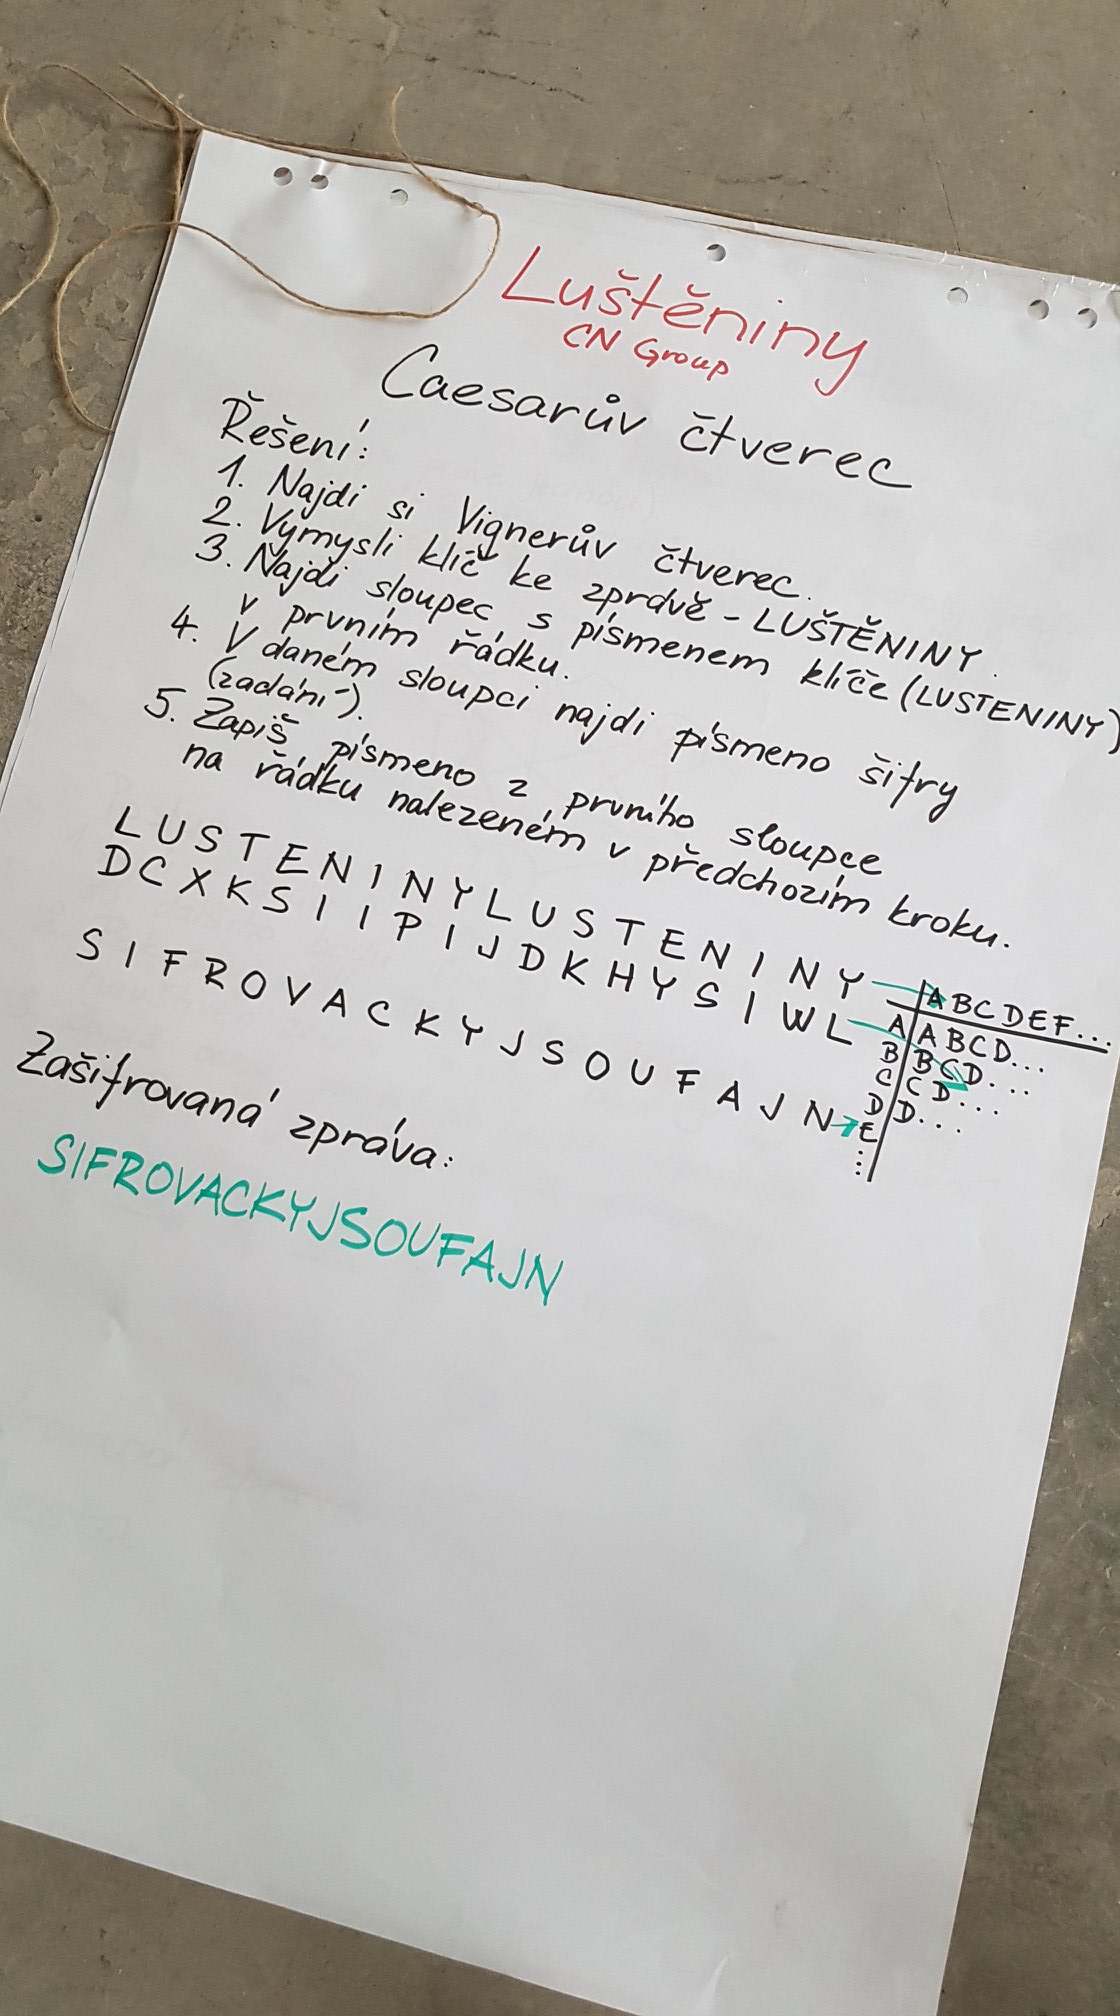 Luštěniny
CN Group
Caesarův čtverec
Řešení:
1. Najdi si Vignerův čtverec.
2. Vymysli klíč ke zprávě - LUŠTĚNINY.
3. Najdi sloupec s písmenem klíče (LUSTENINY)
v prvním řádku.
4. V daném sloupci najdi písmeno šifry
(zadání).
5. Zapiš písmeno z prvního sloupce
na řádku nalezeném v předchozím kroku.
L U S T E N I N Y L U S T E N I N Y
D C X K S I I P I J D K H Y S I W L
S I F R O V A C K Y J S O U F A J N
A B C D E F...
A A B C D...
B B C D...
C C D...
D D...
E
⋮
Zašifrovaná zpráva:
SIFROVACKYJSOUFAJN